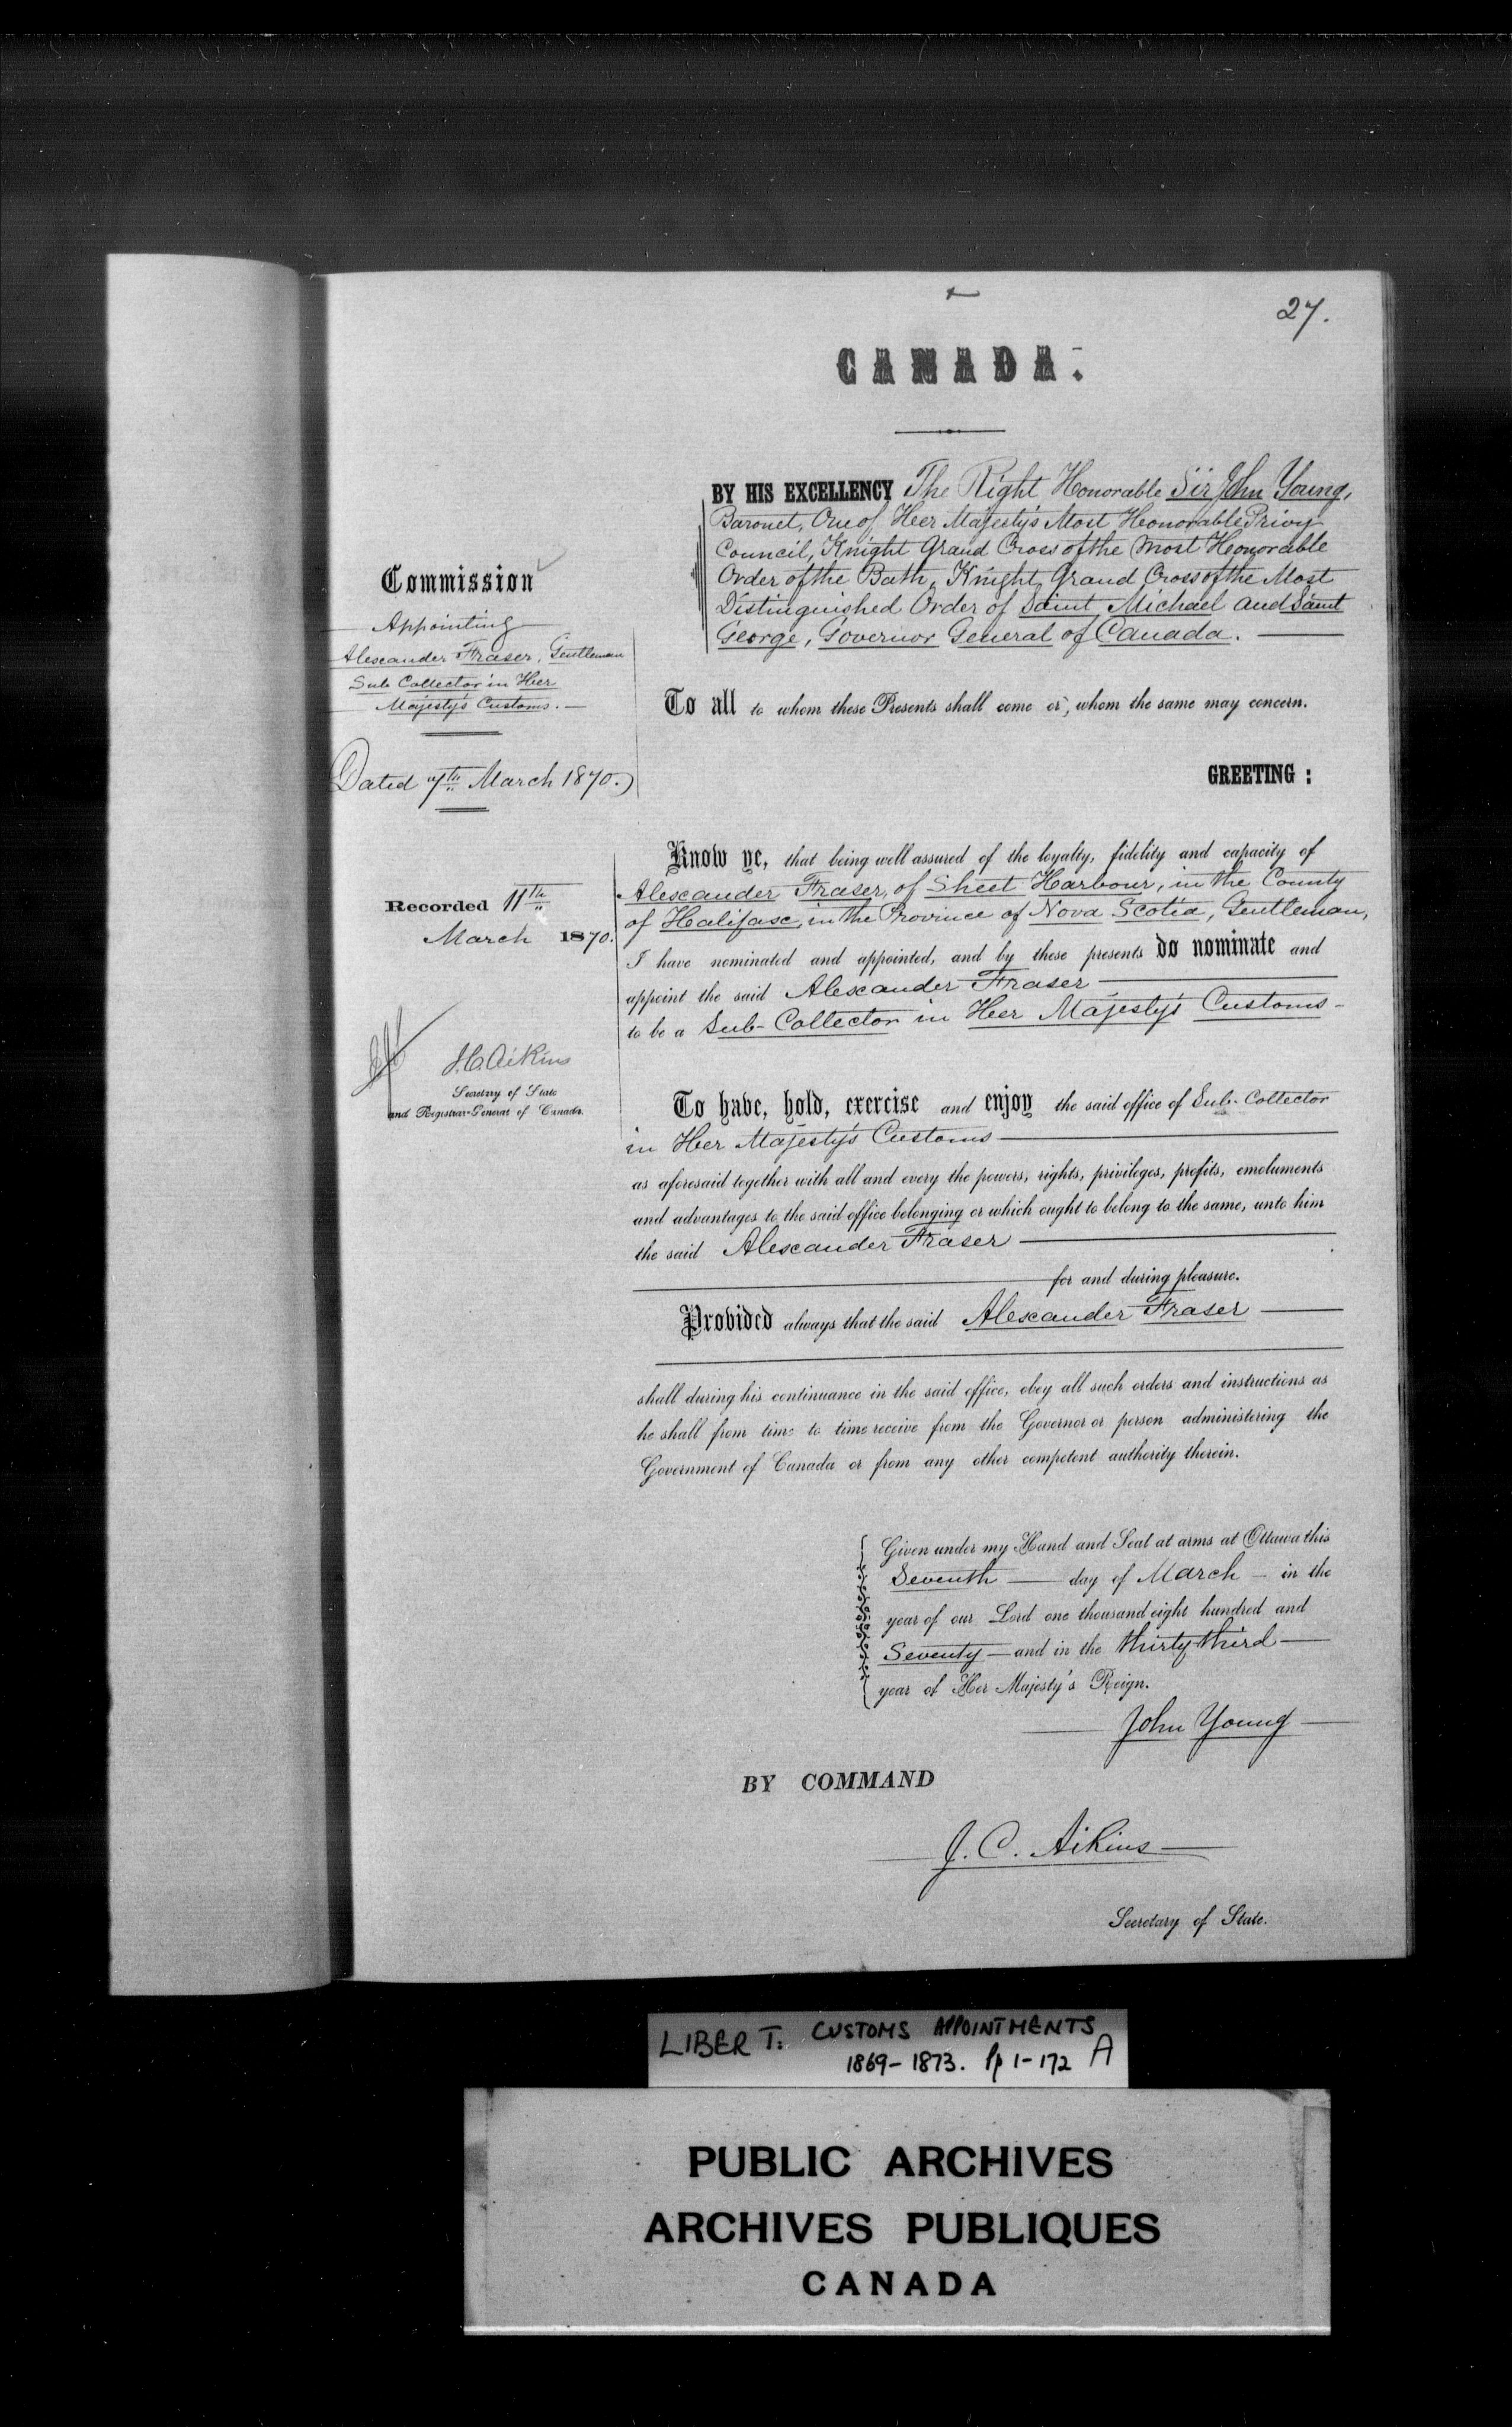 27.
CANADA.
BY HIS EXCELLENCY The Right Honorable Sir John Young,
Baronet, One of Her Majesty's Most Honorable Privy
Council, Knight Grand Cross of the Most Honorable
Order of the Bath, Knight Grand Cross of the Most
Distinguished Order of Saint Michael and Saint
George, Governor General of Canada.
Commission
Appointing
Alexander Fraser, Gentleman
Sub Collector in Her
Majesty's Customs.
Dated 7th March 1870.
To all to whom these Presents shall come or, whom the same may concern.
GREETING :
Recorded 11th
March 1870.
J.C. Aikins
Secretary of State
and Registrar-General of Canada.
Know ye, that being well assured of the loyalty, fidelity and capacity of
Alexander Fraser, of Sheet Harbour, in the County
of Halifax, in the Province of Nova Scotia, Gentleman,
I have nominated and appointed, and by these presents do nominate and
appoint the said Alexander Fraser
to be a Sub-Collector in Her Majesty's Customs
To have, hold, exercise and enjoy the said office of Sub-Collector
in Her Majesty's Customs
as aforesaid together with all and every the powers, rights, privileges, profits, emoluments
and advantages to the said office belonging or which ought to belong to the same, unto him
the said Alexander Fraser
for and during pleasure.
Provided always that the said Alexander Fraser
shall during his continuance in the said office, obey all such orders and instructions as
he shall from time to time receive from the Governor or person administering the
Government of Canada or from any other competent authority therein.
Given under my Hand and Seal at arms at Ottawa this
Seventh day of March in the
year of our Lord one thousand eight hundred and
Seventy and in the thirty third
year of Her Majesty's Reign.
John Young
BY COMMAND
J. C. Aikins
Secretary of State.
LIBER T: CUSTOMS APPOINTMENTS
1869-1873. Pp 1-172 A
PUBLIC ARCHIVES
ARCHIVES PUBLIQUES
CANADA